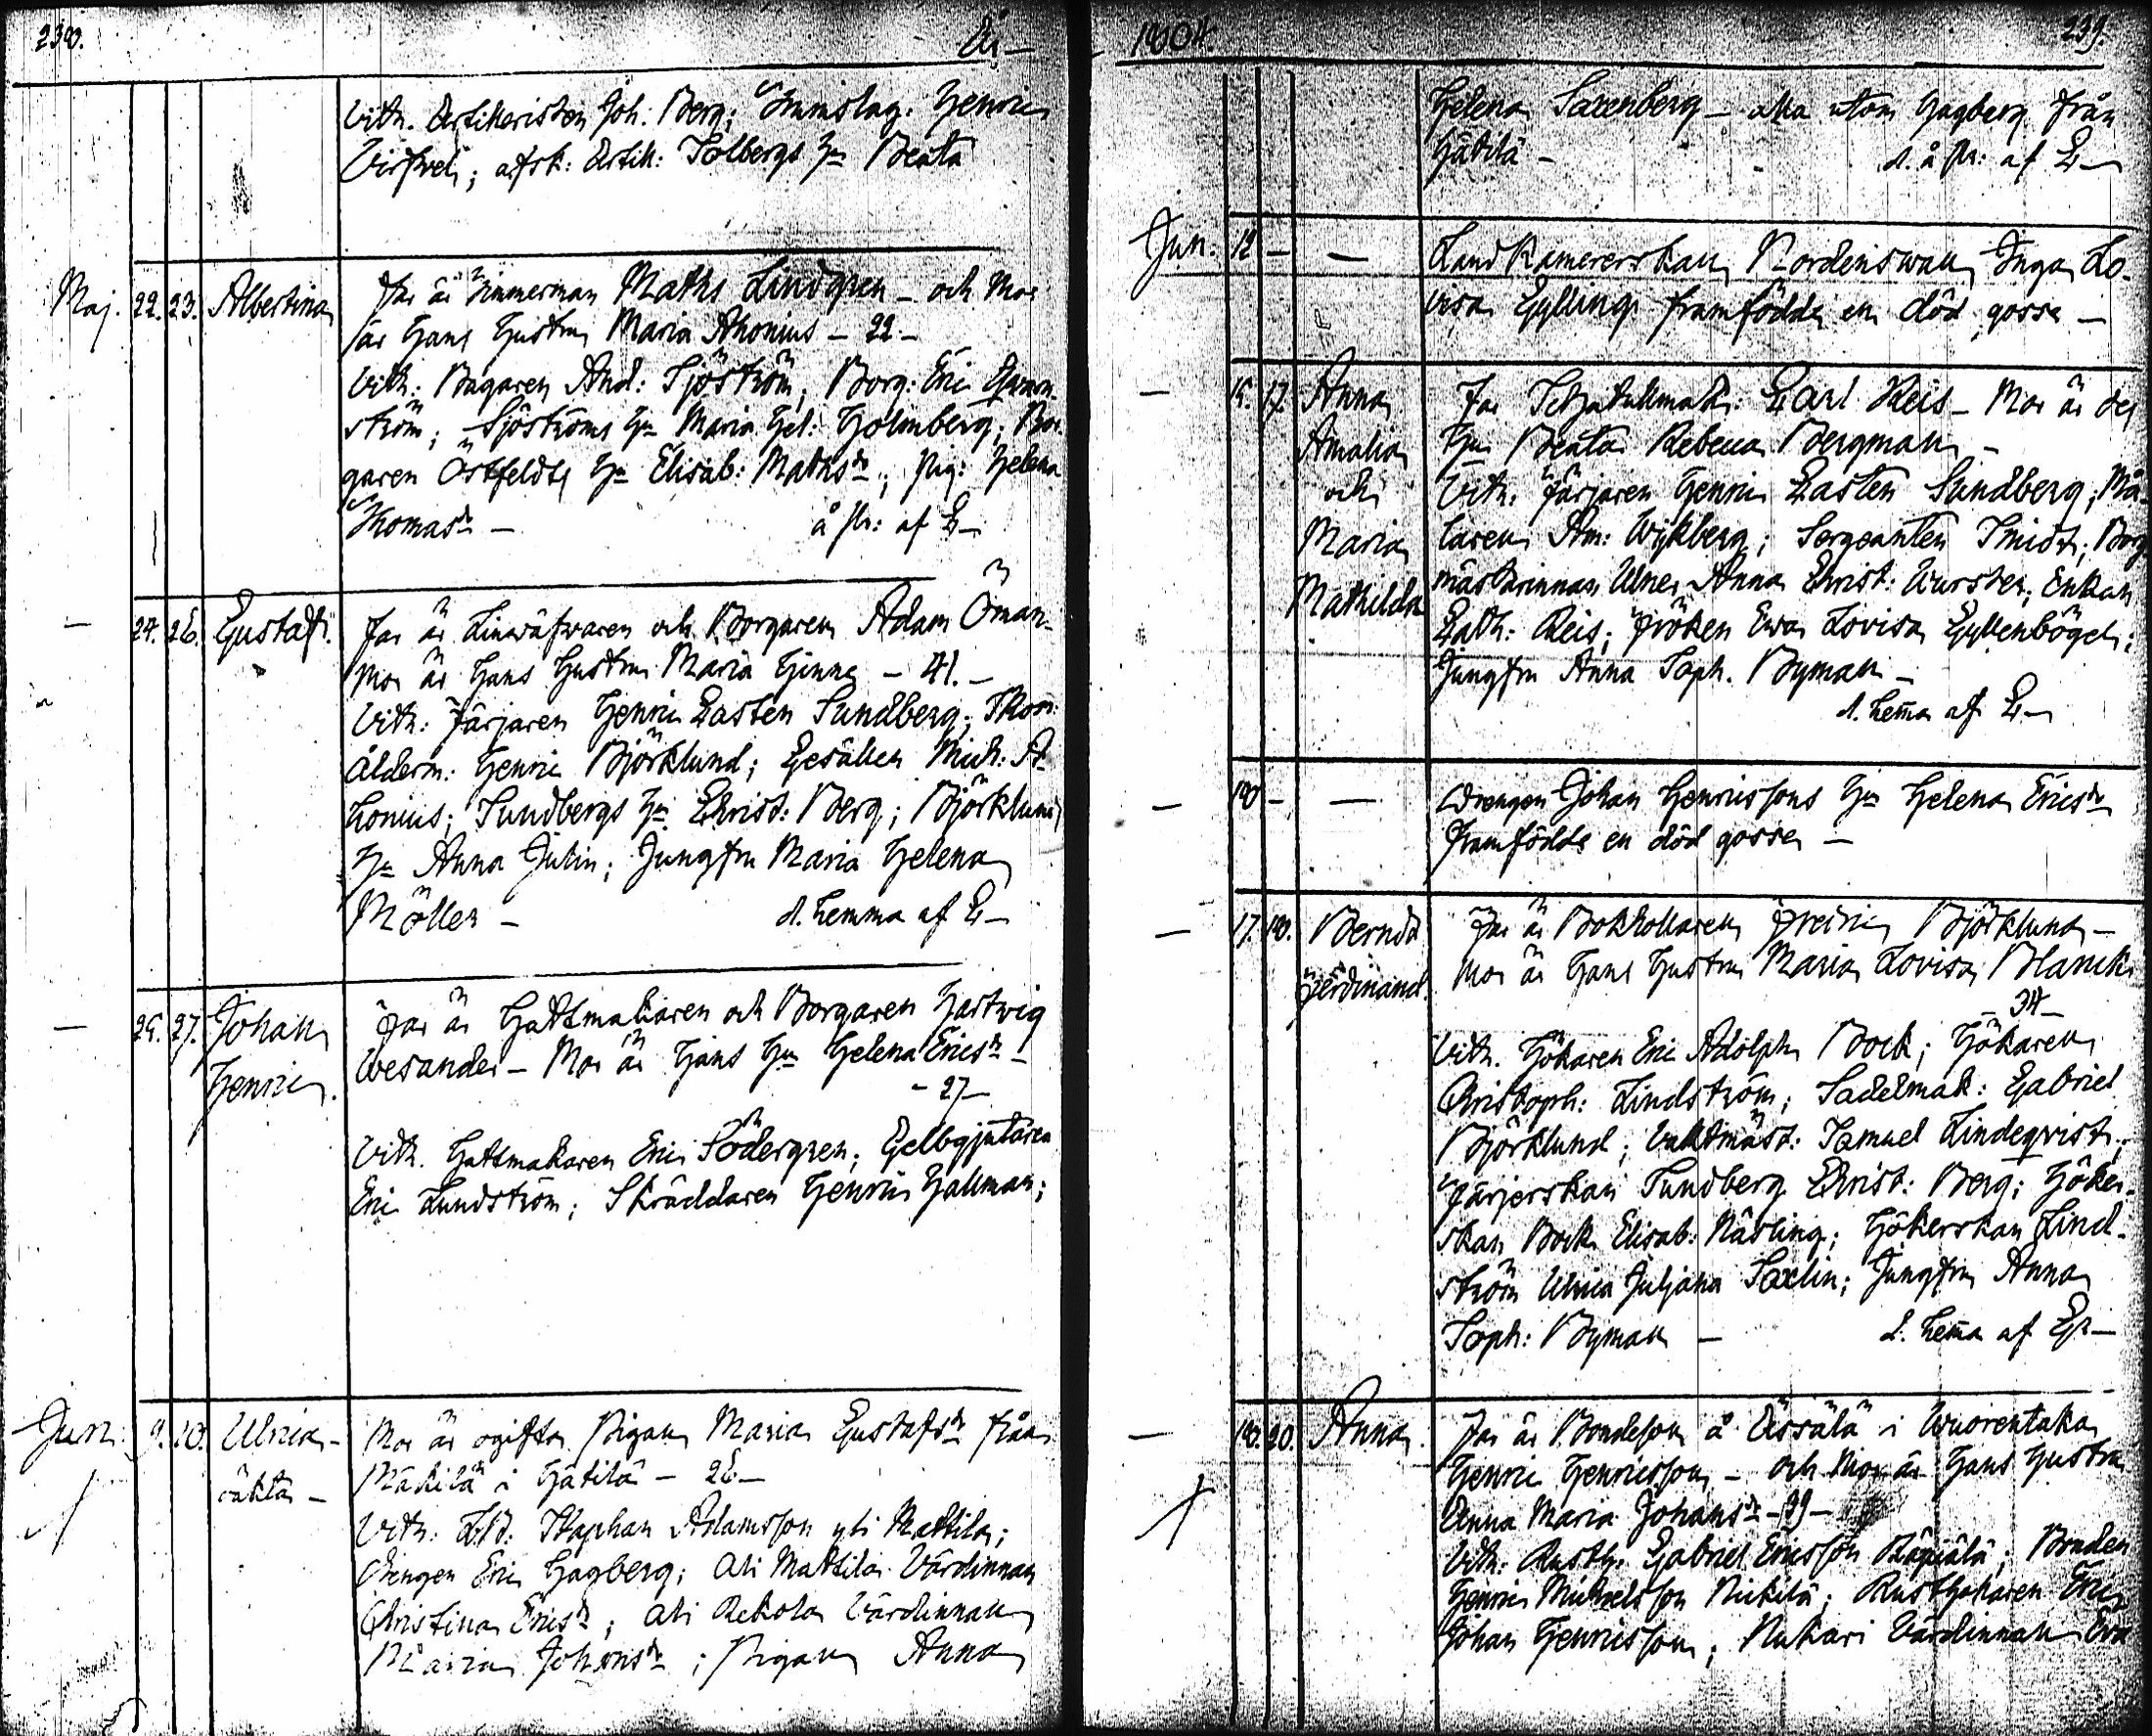 238. År
Vittn. Artilleristen Joh: Berg; Henric
afsk: Artill: Solbergs Hu Beata
Maj. 22. 23. Albertina Far är Timmerman Maths Lindgren – och Mor
är Hans Hustru Maria Ahonius – 22 –
Vittn: Bagaren And: Sjöström; Borg: Eric
ström; Sjöströms Hu Maria Hel: Holmberg; Bor-
garen Östfeldts Hu Elisab: Mathsdr; Pig: Helena
Thomasdr – å
– 24. 26. Gustaf. Far är Linwäfwaren och Borgaren Adam Öman –
Mor är Hans Hustru Maria Hjinne – 41. –
Vittn: Färjaren Henric Carsten Sundberg; Skom:
Ålderm: Henric Björklund; Gesällen Mich: A-
honius; Sundbergs Hu Christ: Berg; Björklunds
Hu Anna Julin; Jungfru Maria Helena
Möller – d. hemma af
– 25. 27. Johan Far är Hattmakaren och Borgaren Hartwig
Henric. Wesander – Mor är Hans Hu Helena Ericsdr –
– 27 –
Vittn. Hattmakaren Eric Södergren; Gelbgjutaren
Eric Lundström; Skräddaren Henric Hallman;
Jun. 9. 10. Ulrica – Mor är ogifta Pigan Maria Gustafsdr från
oäkta – Mäkilä i Hätilä – 26 –
Vittn: Staphan Adamsson yli Mattila;
Drengen Eric Hagberg; Ali Mattila Värdinnan
Christina Ericsdr; Ali Rekola Värdinnan
Maria Johansdr; Pigan Anna
1804. 239.
Helena Saxenberg – alla utom Hagberg från
Hätilä – d. å af
Jun. 12 – – Landkamererskan Nordenswan Inga Lo-
visa Gylling framfödde en död gosse –
– 15. 17. Anna Far Carl Reis – Mor är des
Amalia Hu Beata Rebecca Bergman –
och Vittn: Färjaren Henric Carsten Sundberg; Må-
Maria laren Am: Wykberg; Sergeanten Smidt; Borg
Mathilda mästarinnan Ulner Anna Christ: Wurster; Enkan
Cath: Reis; Fröken Ewa Lovisa Gyllenbögel;
Jungfru Anna Soph. Byman –
d. hema af
– 18 – – Drengen Johan Henricssons Hu Helena Ericsdr
framfödde en död gosse –
– 17. 18. Berndt Far är Bokhållaren Fredric Björklund –
Ferdinand. Mor är Hans Hustru Maria Lovisa Blanck
– 34 –
Vittn. Hökaren Eric Adolph Bock; Hökaren
Christoph: Lindström; Sadelmak: Gabriel
Björklund; Vaktmäst: Samuel Lindeqvist;
Färjerskan Sundberg Christ: Berg; Höker-
skan Bock Elisab: Näsling; Hökerskan Lind-
ström Ulrica Juljana Saxlin; Jungfru Anna
Soph: Byman – d. hema af
– 18. 20. Anna. Far är Bondeson å Ässälä i Wuorentaka
Henric Henricsson – och Mor är Hans Hustru
Anna Maria Johansdr – 39 –
Vittn: Rusth: Gabriel Ericsson Bonden
Henric Michelsson Rusthållaren Eric
Johan Henricsson; Nukari Värdinnan Eva